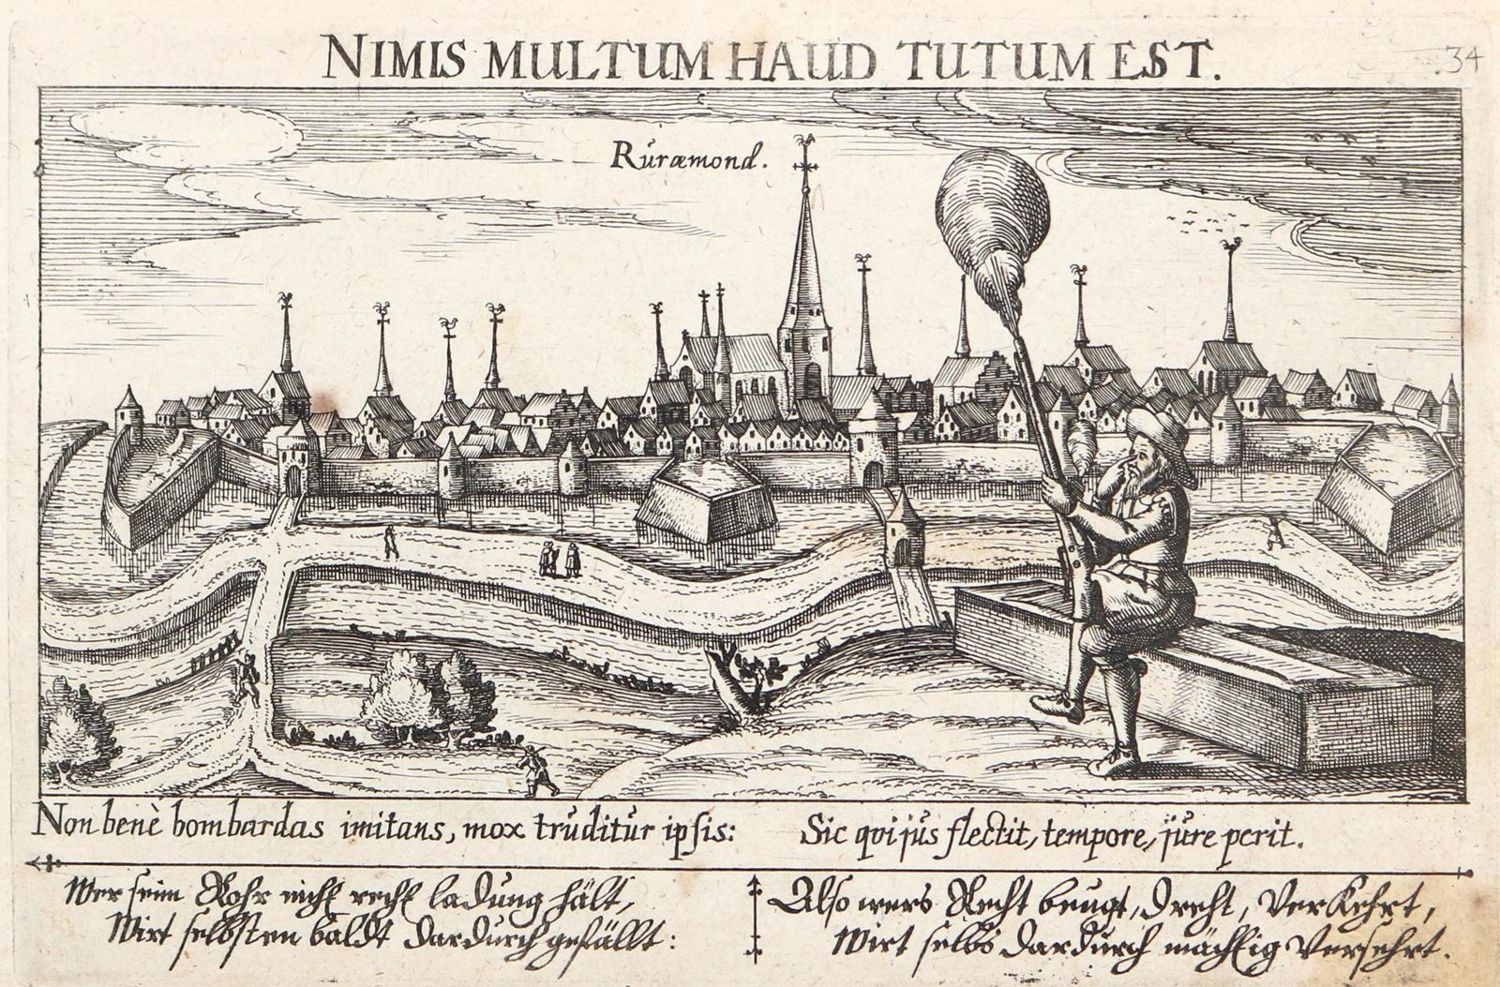 NIMIS MULTUM HAUD TUTUM EST.
34
Ruræmond.
Non benè bombardas imitans, mox truditur ipsis:
Sic qvi jus flectit, tempore, jure perit.
Wer seim Rohr nicht recht ladung hält,
Wirt selbsten baldt dardurch gefällt:
Also wers Recht beugt, dreht, verKehrt,
Wirt selbs dardurch mächtig versehrt.